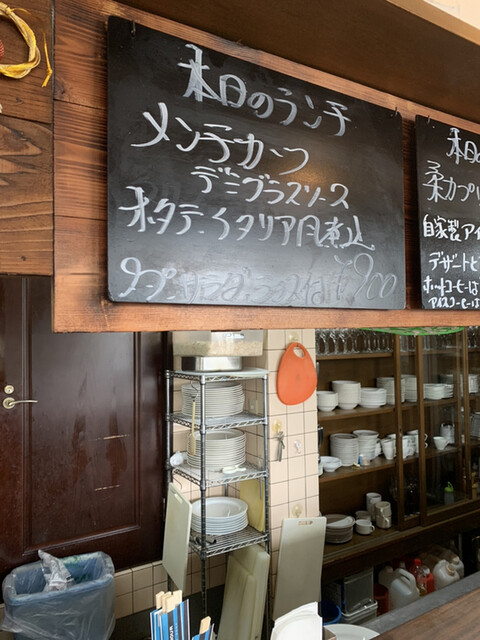 本日のランチ
メンチカツ
デミグラスソース
ホタテ、イタリア風煮込
スープ、サラダ、ライス付 ¥900
本日の
柔カプリ
自家製アイ
デザートと
ホットコーヒーは
アイスコーヒーは